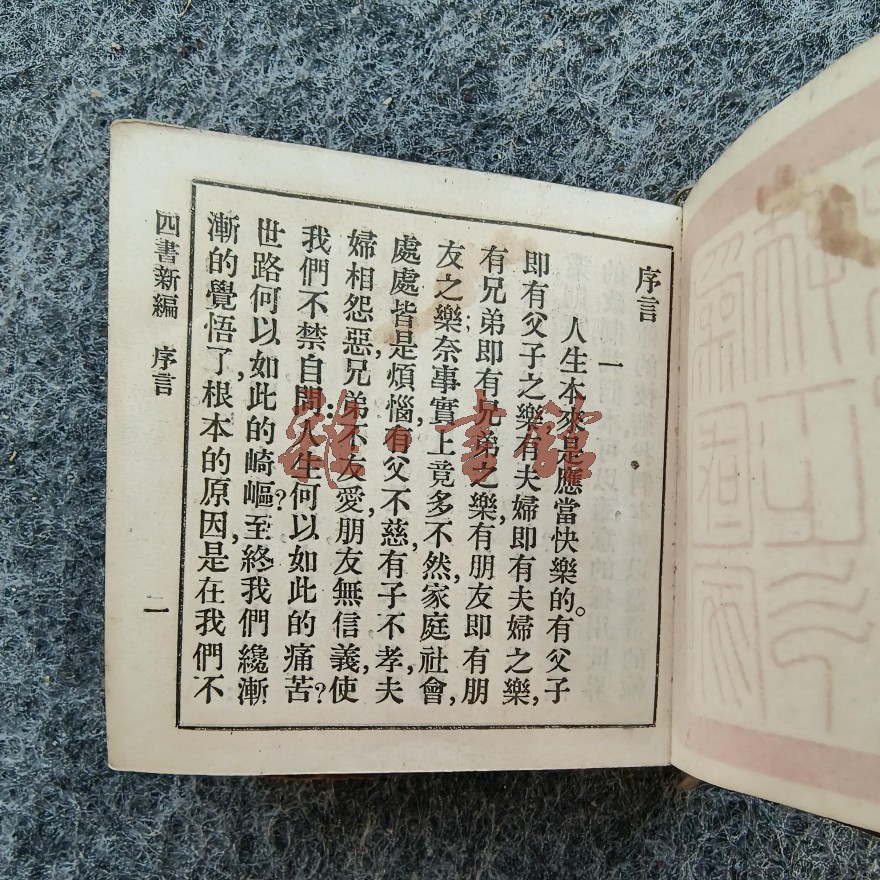 序言
一
人生本來是應當快樂的。有父子
即有父子之樂,有夫婦即有夫婦之樂,
有兄弟即有兄弟之樂,有朋友即有朋
友之樂;奈事實上竟多不然,家庭社會,
處處皆是煩惱,有父不慈,有子不孝,夫
婦相怨惡,兄弟不友愛,朋友無信義,使
我們不禁自問:人生何以如此的痛苦?
世路何以如此的崎嶇?至終我們纔漸
漸的覺悟了,根本的原因是在我們不
四書新編 序言
一
雜·書館